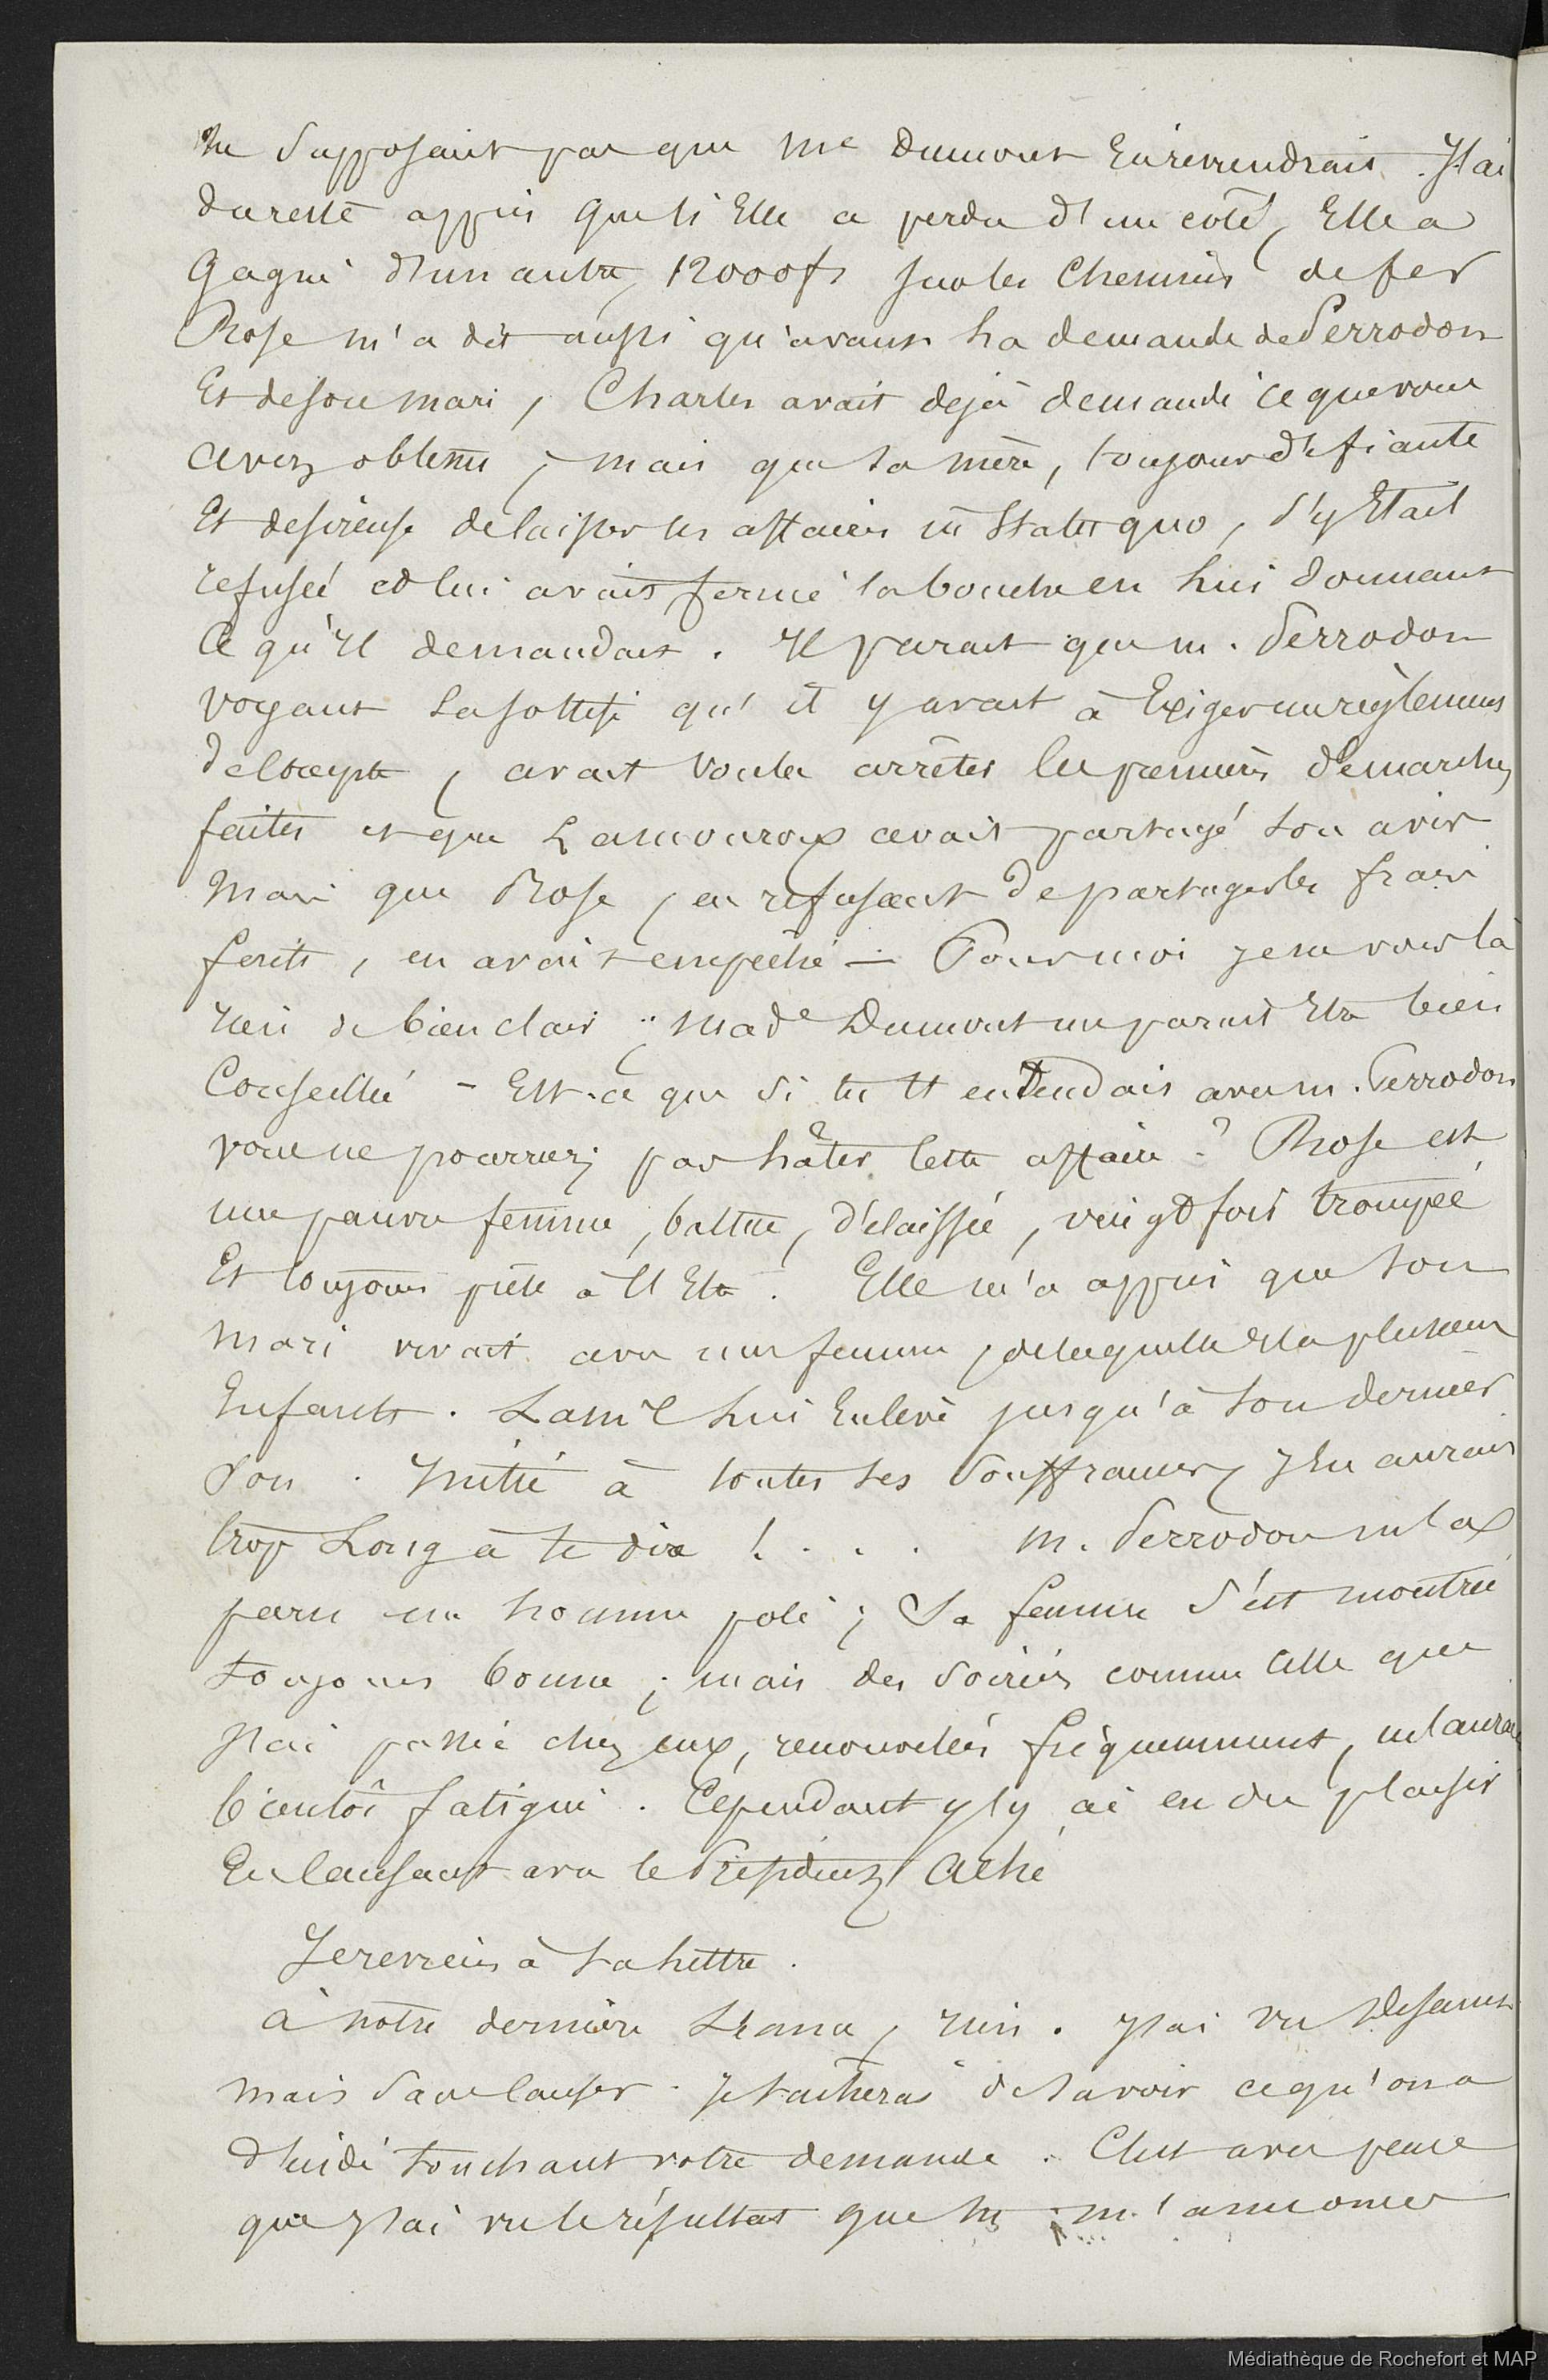 ne supposait pas que Me Dumont en reviendrait. J'ai
dureste appris que si Elle a perdu d'un côté, Elle a
gagné d'un autre, 12000fs sur les Chemins de fer
Rose m'a dit aussi qu'avant la demande de Perrodon
Et de son mari, Charles avait dejà demandé ce que vous
avez obtenu, mais que sa mère, toujours défiante
Et desireuse de laisser les affaires in Statu quo, s'y Etait
refusée et lui avait fermé la bouche en lui donnant
Ce qu'il demandait. Il parait que m. Perrodon
voyant la sottise qu'il y avait à Exiger un règlement
de compte, avait voulu arrêter les premières démarches
faites et que Lamouroux avait partagé son avis
Mais que Rose, en refusant de partager les frais
faits, en avait empêché — Pour moi je ne vois là
rien de bien clair ; Made Dumont me parait Etre bien
Conseillée - Est-ce que si tu t'entendais avec m. Perrodon
vous ne pourriez pas hâter cette affaire ? Rose est
une pauvre femme, battue, délaissée, vingt fois trompée
Et toujours prête à l'Etre. Elle m'a appris que son
Mari vivait avec une femme, de laquelle il a plusieurs
Enfants. Lami lui Enlève jusqu'à son dernier
Sou. Initié à toutes ses Souffrances, J'en aurais
trop Long à te dire ! . . . m. Perrodon m'a
paru un homme poli ; Sa femme s'est montrée
toujours bonne ; mais des soirées comme celle que
J'ai passée chez eux, renouvelées fréquemment, m'auraient
bientôt fatigué. Cependant j'y ai eu du plaisir
En causant avec le Président

Je reviens à ta lettre.
à notre dernière Séance, rien. J'ai vu
mais sans causer. Je tacherai de savoir ce qu'on a
décidé touchant votre demande. C'est avec peine
que J'ai vu le résultat que tu m'annonces
Médiathèque de Rochefort et MAP